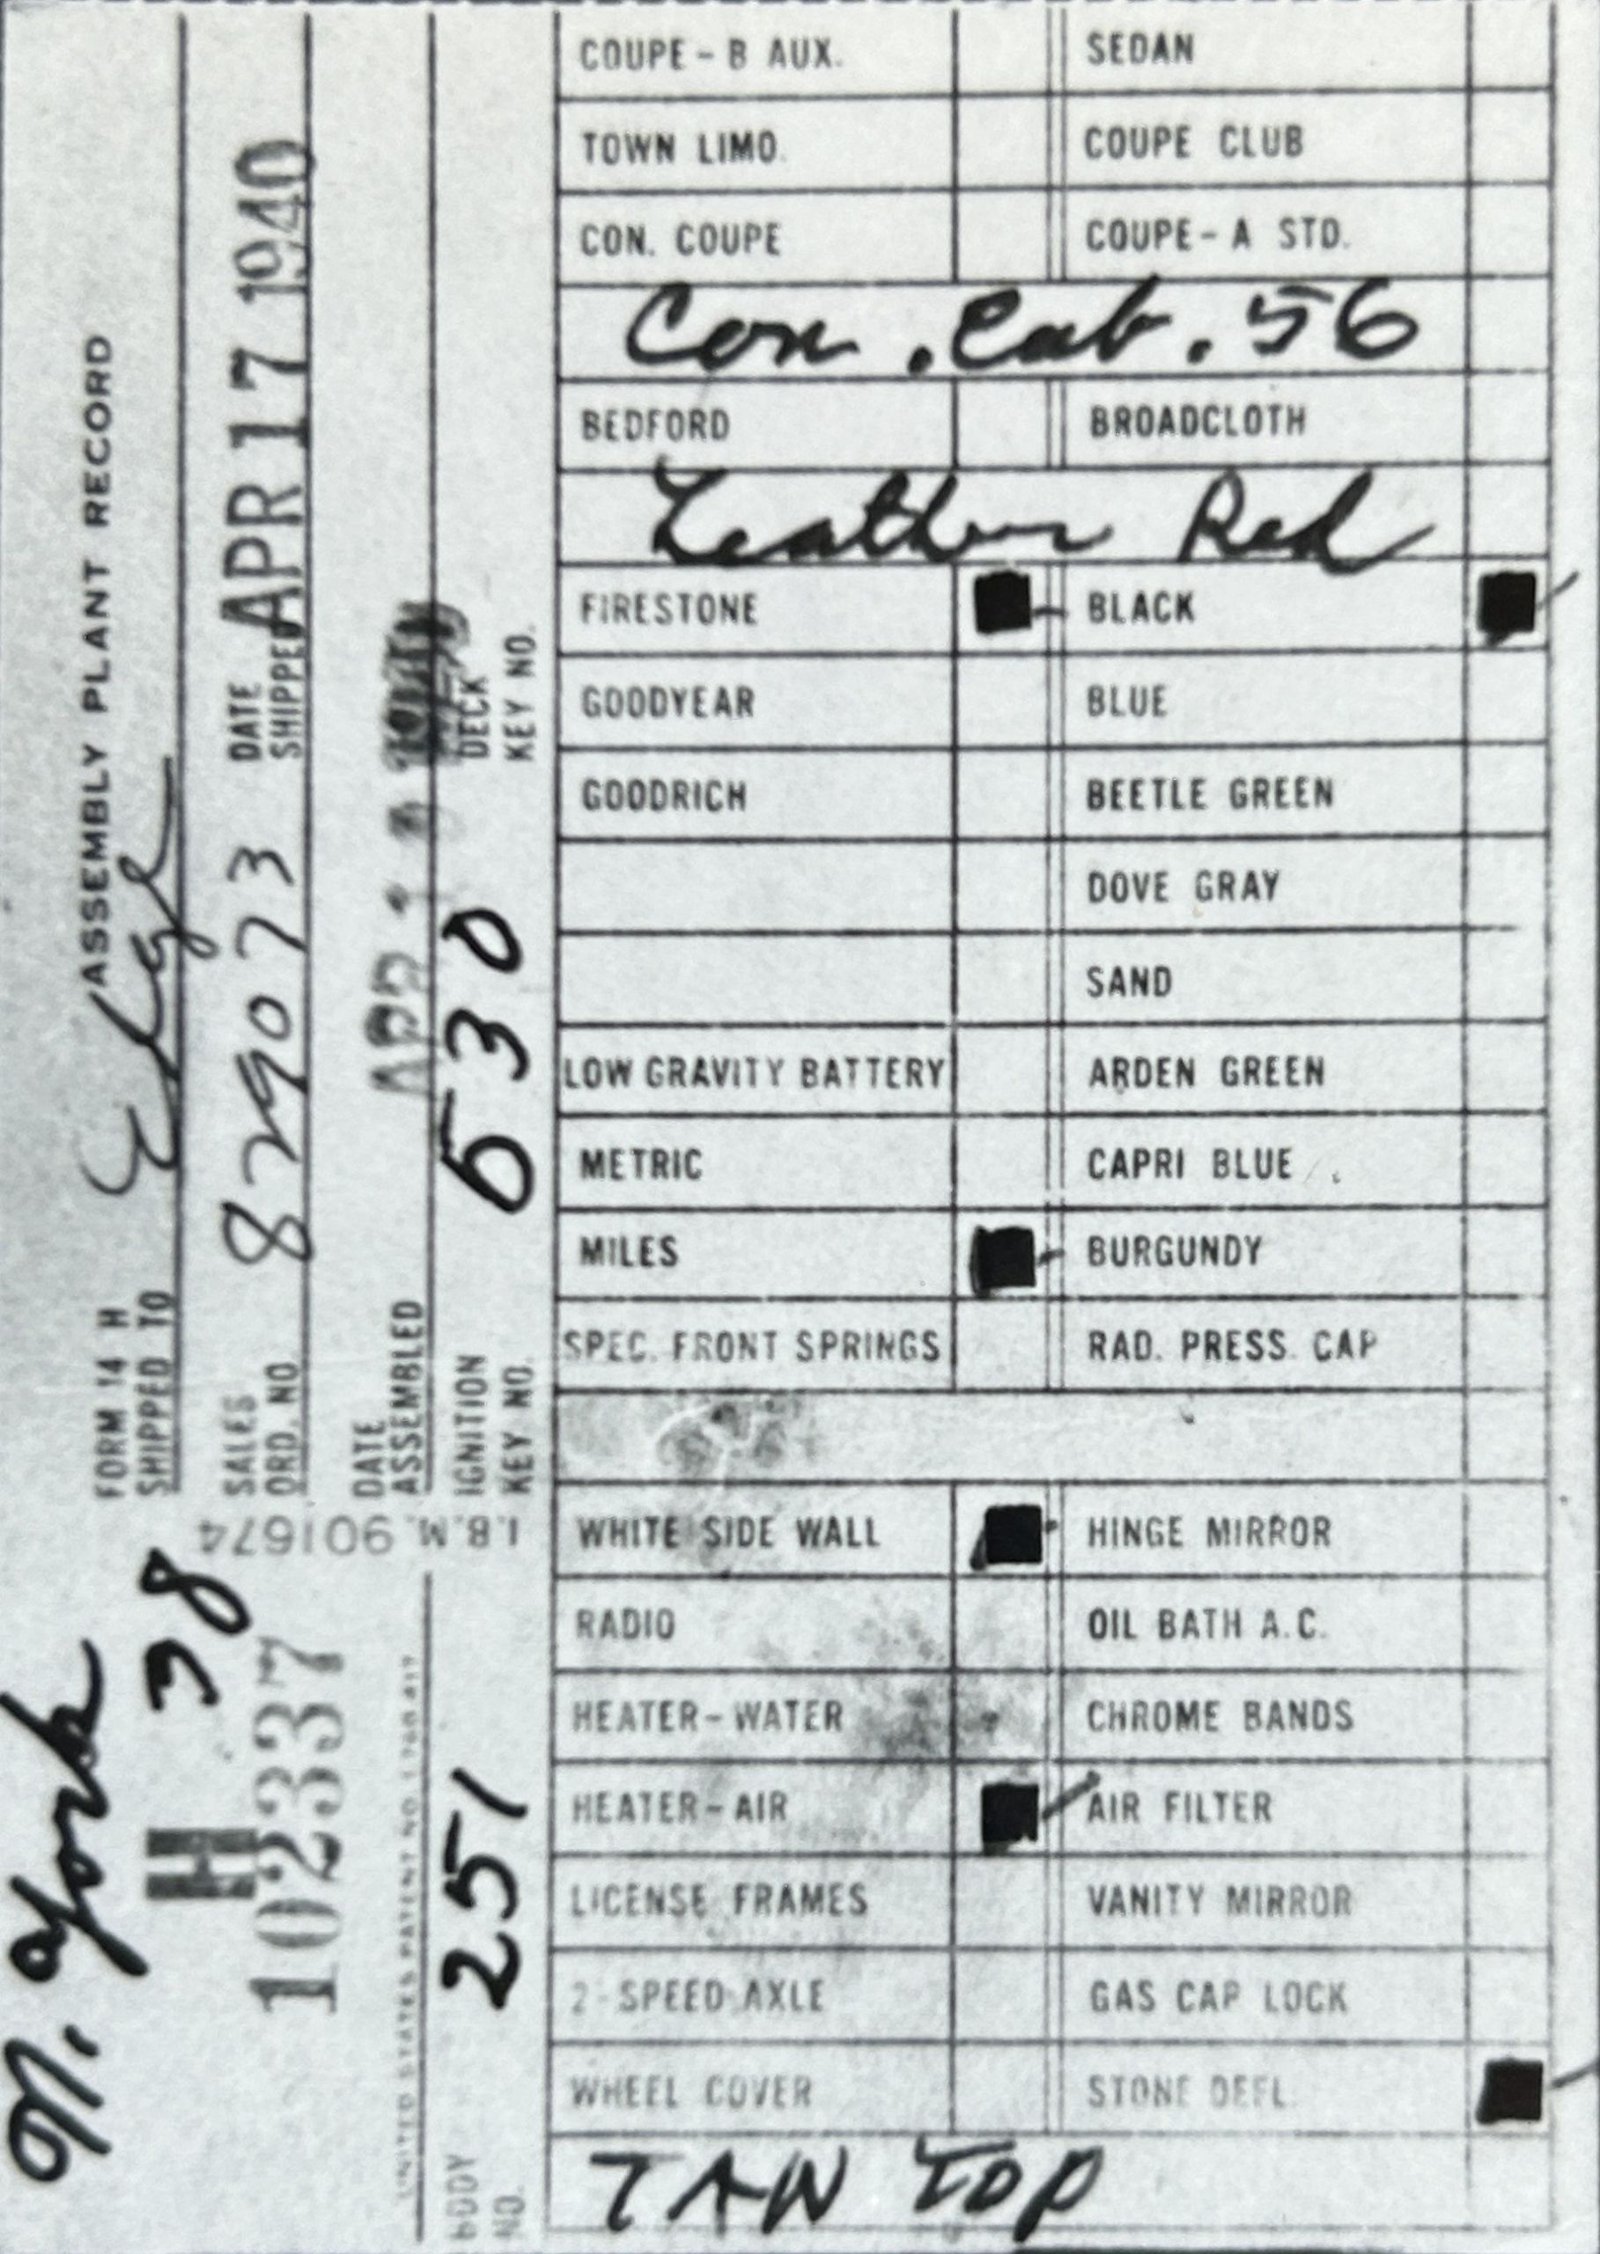 ASSEMBLY PLANT RECORD
FORM 14 H
SHIPPED TO
SALES ORD. NO. 829073
DATE SHIPPED APR 17 1940
DATE ASSEMBLED
IGNITION KEY NO. 6530
DECK KEY NO.
I.B.M. 901674
N. York
38
H
102337
UNITED STATES PATENT NO.
BODY NO. 251
COUPE-B AUX. SEDAN
TOWN LIMO. COUPE CLUB
CON. COUPE COUPE-A STD.
Con. Cab. 56
BEDFORD BROADCLOTH
Leather Red
FIRESTONE BLACK
GOODYEAR BLUE
GOODRICH BEETLE GREEN
DOVE GRAY
SAND
LOW GRAVITY BATTERY ARDEN GREEN
METRIC CAPRI BLUE
MILES BURGUNDY
SPEC. FRONT SPRINGS RAD. PRESS. CAP
WHITE SIDE WALL HINGE MIRROR
RADIO OIL BATH A.C.
HEATER-WATER CHROME BANDS
HEATER-AIR AIR FILTER
LICENSE FRAMES VANITY MIRROR
2-SPEED AXLE GAS CAP LOCK
WHEEL COVER STONE DEFL.
TAN TOP